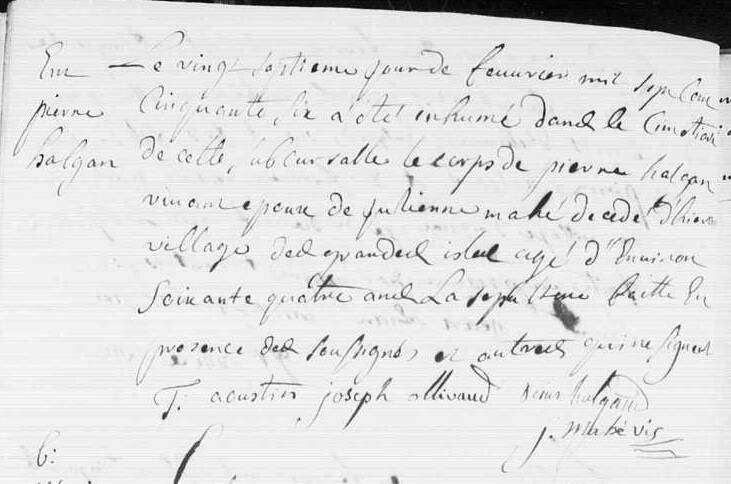 Ent
pierre
halgan
Le vingt septieme jour de feuvrier mil sept cent
Cinquante six a été inhumé dans le Cimetiere
de cette le corps de pierre halgan
vivant epoux de Julienne mahé decedé d'hier
village des grandes isles agé d'Environ
soixante quatre ans La sepulture faitte En
presence des soussignés et autres qui ne signent
joseph ollivaud denis halgand
j. mahé vic
b: